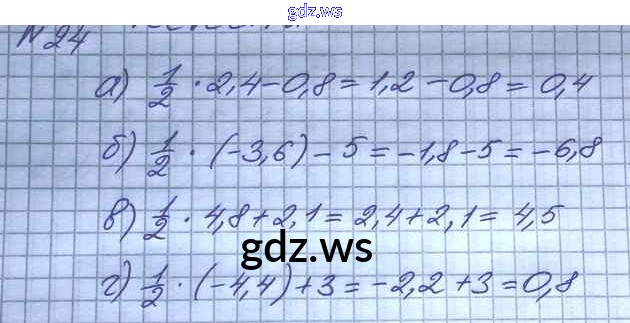 gdz.ws
N 24
а) 1/2 · 2,4 - 0,8 = 1,2 - 0,8 = 0,4
б) 1/2 · (-3,6) - 5 = -1,8 - 5 = -6,8
в) 1/2 · 4,8 + 2,1 = 2,4 + 2,1 = 4,5
gdz.ws
г) 1/2 · (-4,4) + 3 = -2,2 + 3 = 0,8